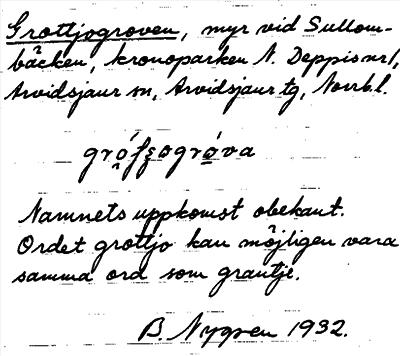 Grottjogroven, myr vid Sullom-
bäcken, kronoparken N. Deppis nr 1,
Arvidsjaur sn, Arvidsjaur tg, Norrb.l.
Namnets uppkomst obekant.
Ordet grottjo kan möjligen vara
samma ord som grantje.
B. Nygren 1932.